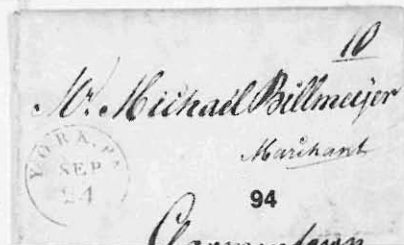 10
Mr. Michael Billmeijer
Marchant
YORK, Pa
SEP
24
94